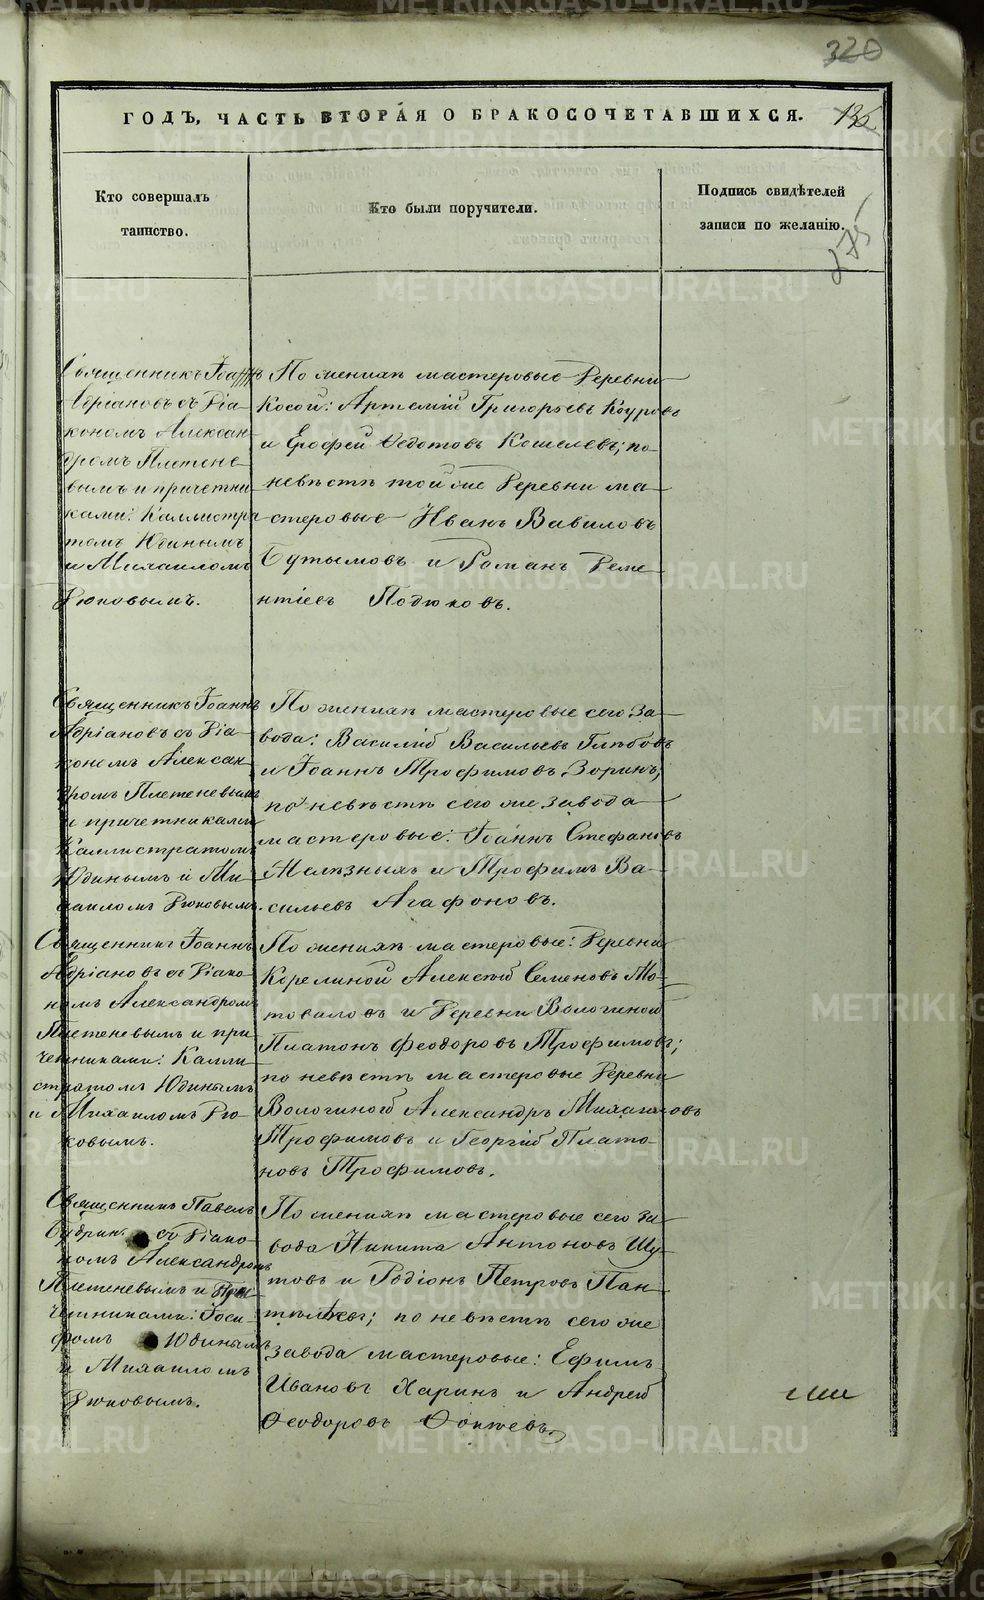 320
ГОДЪ, ЧАСТЬ ВТОРАЯ О БРАКОСОЧЕТАВШИХСЯ.
Кто совершалъ
таинство.
Кто были поручители.
Подпись свидѣтелей
записи по желанію.
Священникъ Іоаннъ
Адріановъ съ Діа-
кономъ Алексан-
дромъ Плетене-
вымъ и причетни-
ками: Каллистра-
томъ Юдинымъ
и Михаиломъ
Рюковымъ.
По женихѣ мастеровые деревни
Косой: Артемій Григорьевъ Коуровъ
и Ерофей Ѳедотовъ Кошелевъ; по
невѣстѣ той же деревни ма-
стеровые Иванъ Вавиловъ
Бутымовъ и Романъ Деме-
нтіевъ Подюковъ.
Священникъ Іоаннъ
Адріановъ съ Діа-
кономъ Алексан-
дромъ Плетеневымъ
и причетниками
Каллистратомъ
Юдинымъ и Ми-
хаиломъ Рюковымъ.
По женихѣ мастеровые сего за-
вода: Василій Васильевъ Глѣбовъ
и Іоаннъ Трофимовъ Зоринъ;
по невѣстѣ сего же завода
мастеровые: Іоаннъ Стефановъ
Желѣзныхъ и Трофимъ Ва-
сильевъ Агафоновъ.
Священникъ Іоаннъ
Адріановъ съ Діако-
номъ Александромъ
Плетеневымъ и при-
четниками: Калли-
стратомъ Юдинымъ
и Михаиломъ Рю-
ковымъ.
По женихѣ мастеровые: деревни
Корелиной Алексѣй Семеновъ Мо-
товиловъ и деревни Вологиной
Платонъ Феодоровъ Трофимовъ;
по невѣстѣ мастеровые деревни
Вологиной Александръ Михаиловъ
Трофимовъ и Георгій Плато-
новъ Трофимовъ.
Священникъ Павелъ
съ Діако-
номъ Александромъ
Плетеневымъ и При-
четниками: Іоси-
фомъ Юдинымъ
и Михаиломъ
Рюковымъ.
По женихѣ мастеровые сего за-
вода Никита Антоновъ Шу-
товъ и Родіонъ Петровъ Пан-
телѣевъ; по невѣстѣ сего же
завода мастеровые: Ефимъ
Ивановъ Харинъ и Андрей
Ѳеодоровъ
METRIKI.GASO-URAL.RU